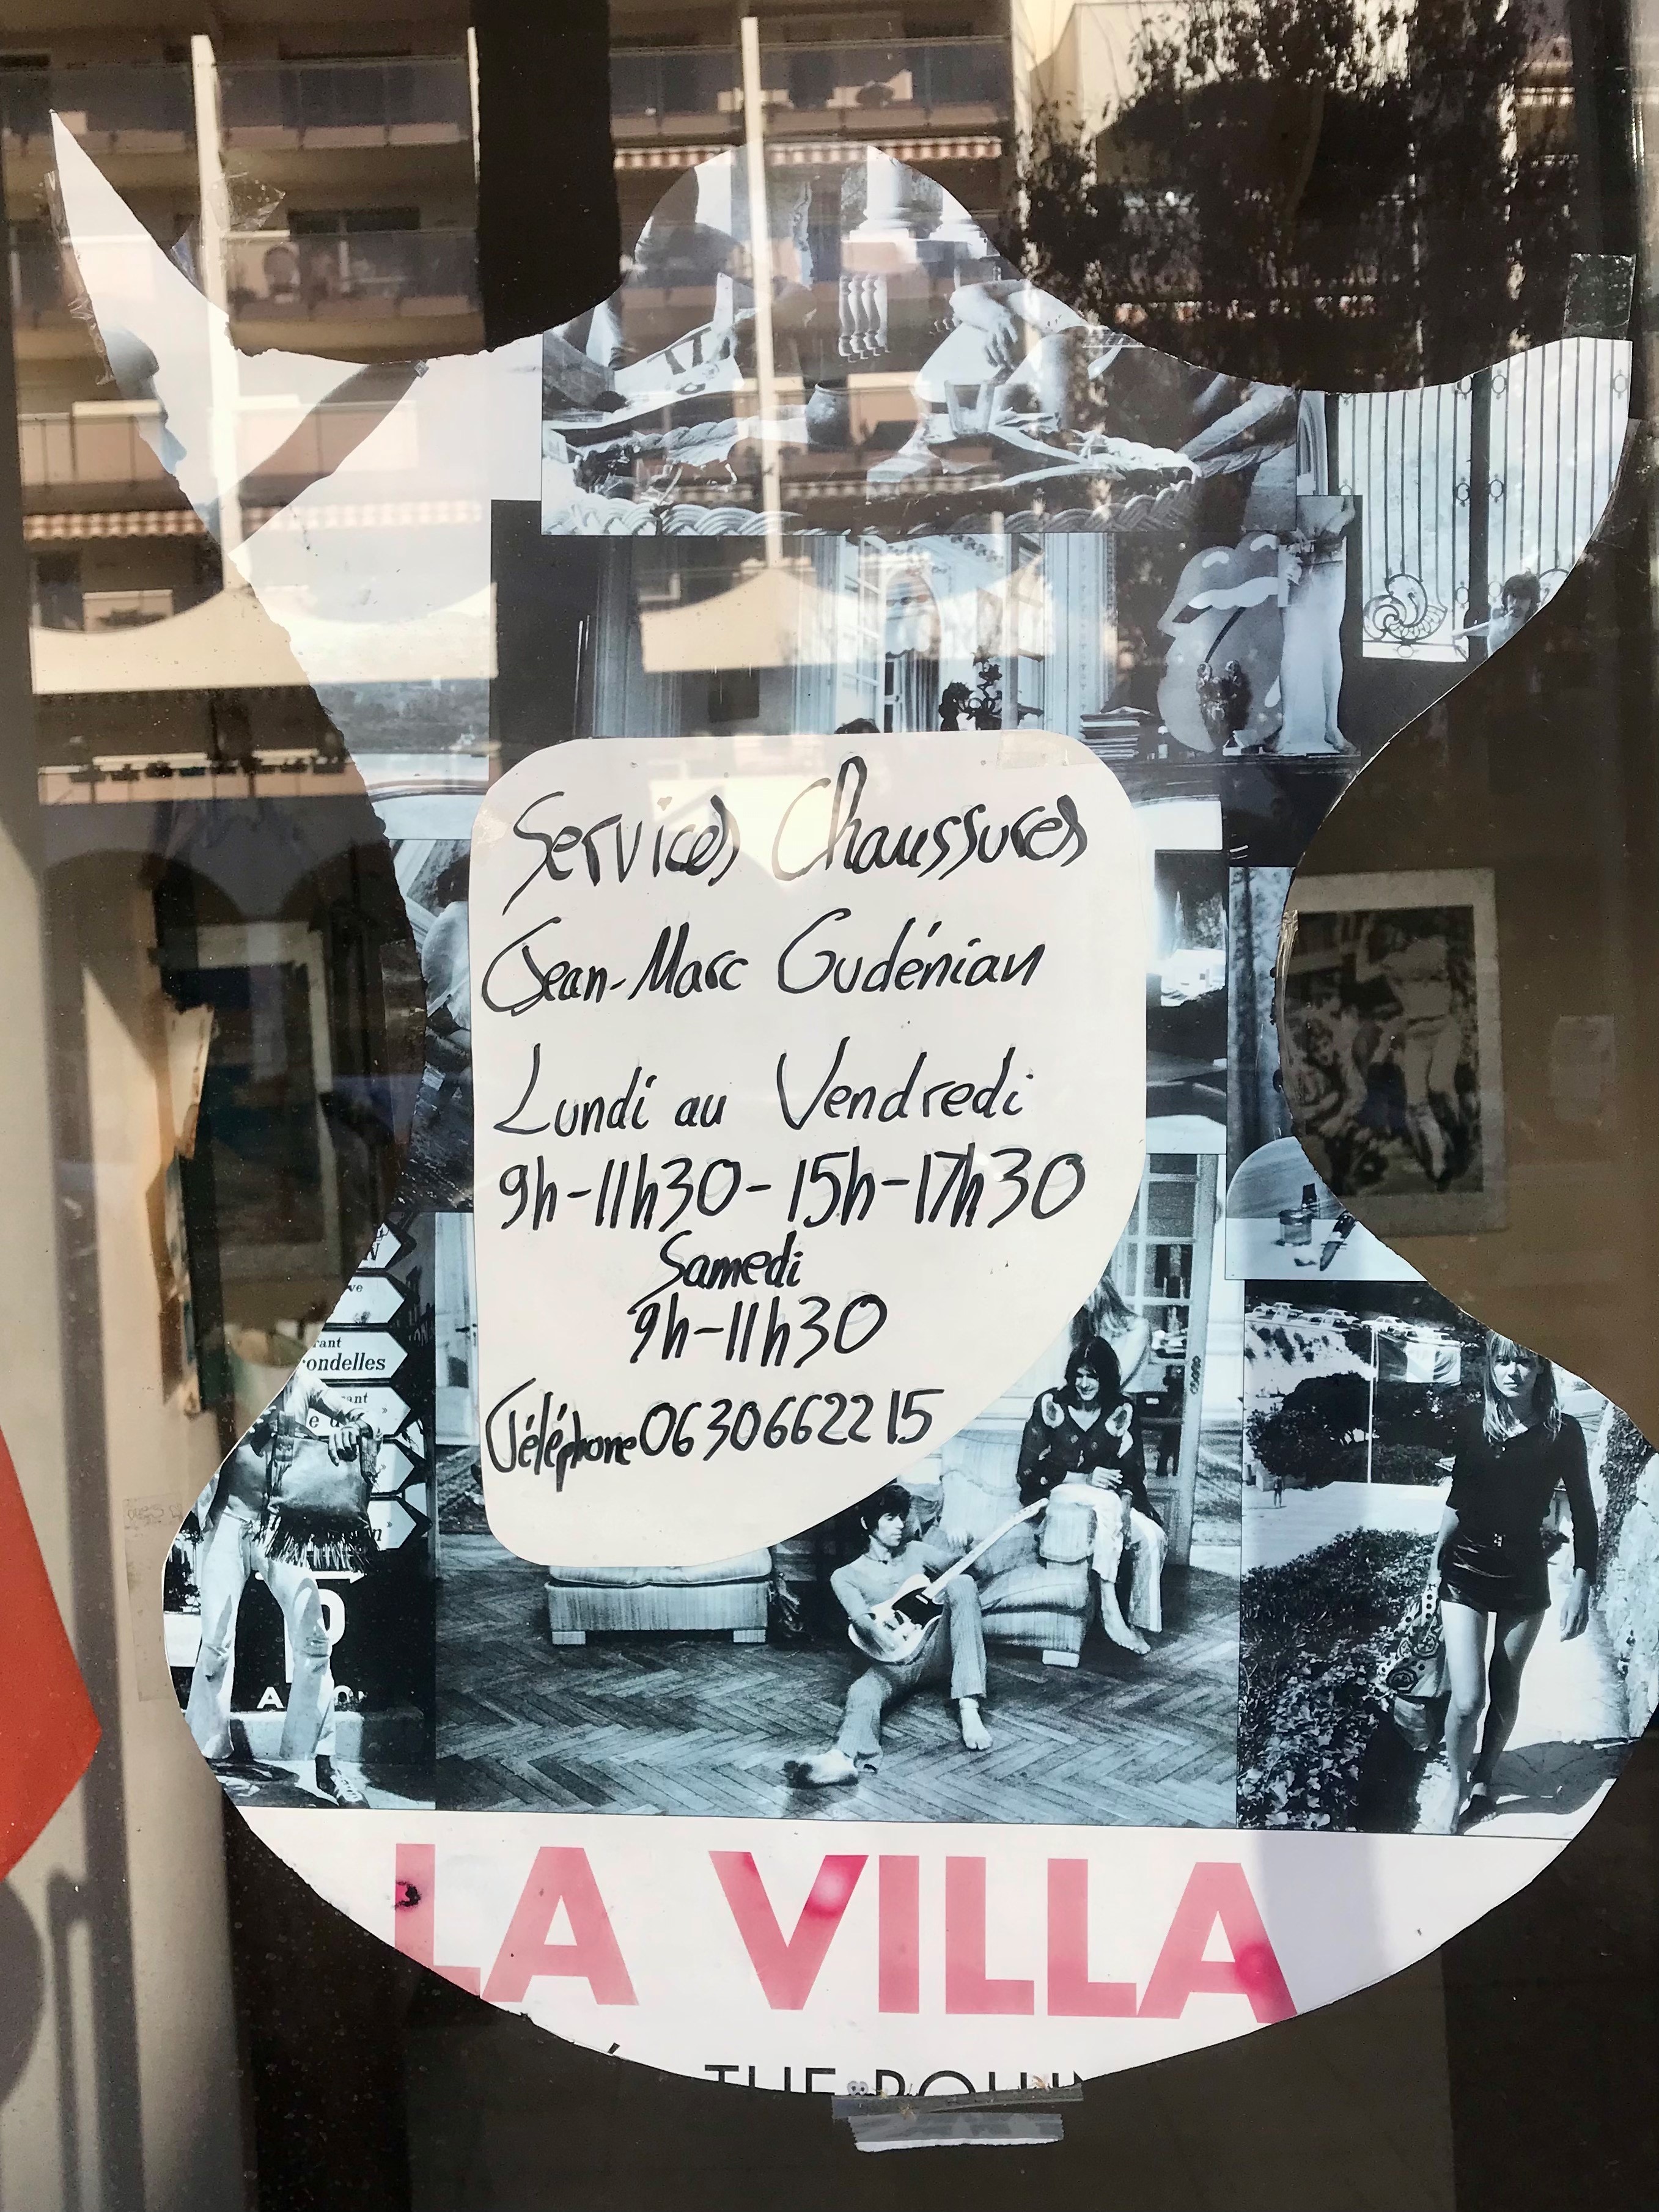 Services Chaussures
Jean-Marc Gudénian
Lundi au Vendredi
9h-11h30-15h-17h30
Samedi
9h-11h30
Téléphone 0630662215
ondelles
LA VILLA
THE